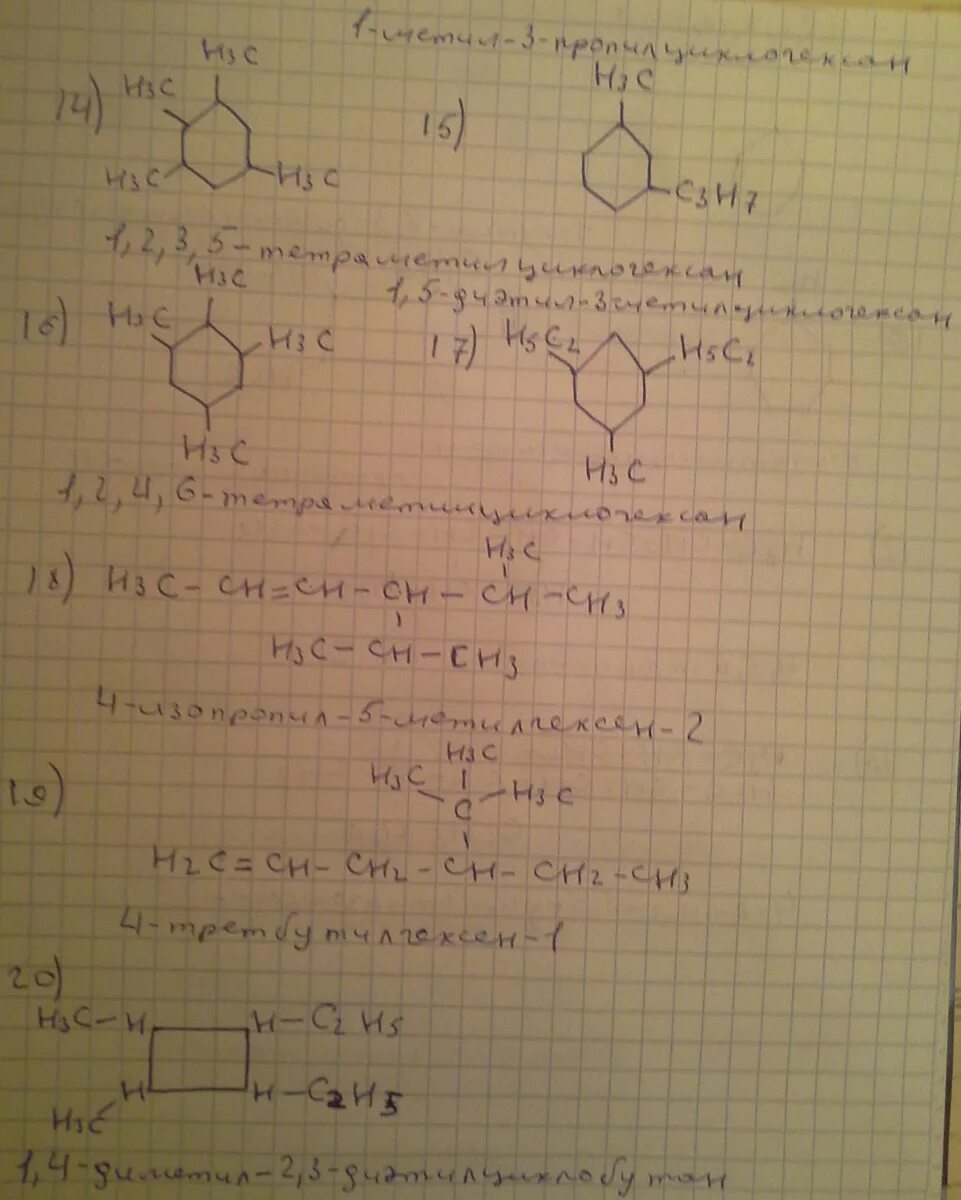 1-метил-3-пропилциклогексан
H3C
H3C
14)
15)
H3C
H3C
H3C
C3H7
1,2,3,5-тетраметилциклогексан
1,5-диэтил-3-метилциклогексан
H3C
16)
H3C
H3C
17)
H5C2
H5C2
H3C
H3C
1,2,4,6-тетраметилциклогексан
H3C
18) H3C-CH=CH-CH-CH-CH3
H3C-CH-CH3
4-изопропил-5-метилгексен-2
H3C
19)
H3C
H3C
C
H2C=CH-CH2-CH-CH2-CH3
4-третбутилгексен-1
20)
H3C-H H-C2H5
H H-C2H5
H3C
1,4-диметил-2,3-диэтилциклобутан